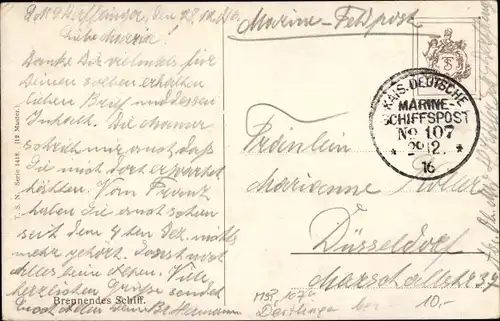 S.M.S. Derfflinger, den 28.12.16.
Liebe Maria!
Danke Dir vielmals für
Deinen soeben erhalten
lieben Brief und dessen
Inhalt. Die Mama
schrieb mir auch, daß
Sie mich dort erwartet
hätten. Vom Franz
haben Sie auch schon
seit dem 4ten Dez. nichts
mehr gehört. Sonst noch
alles beim alten. Viele
herzlichen Grüße sendet
Hermann
Brennendes Schiff.
T. S. N., Serie 1418. (12 Muster.)
Marine-Feldpost
TSN
KAIS. DEUTSCHE
MARINE-
SCHIFFSPOST
No 107
* 29 12. *
16
Fräulein
Marianne
Düsseldorf
Marschallstr 37
MSP 107
Derflinger
10.-